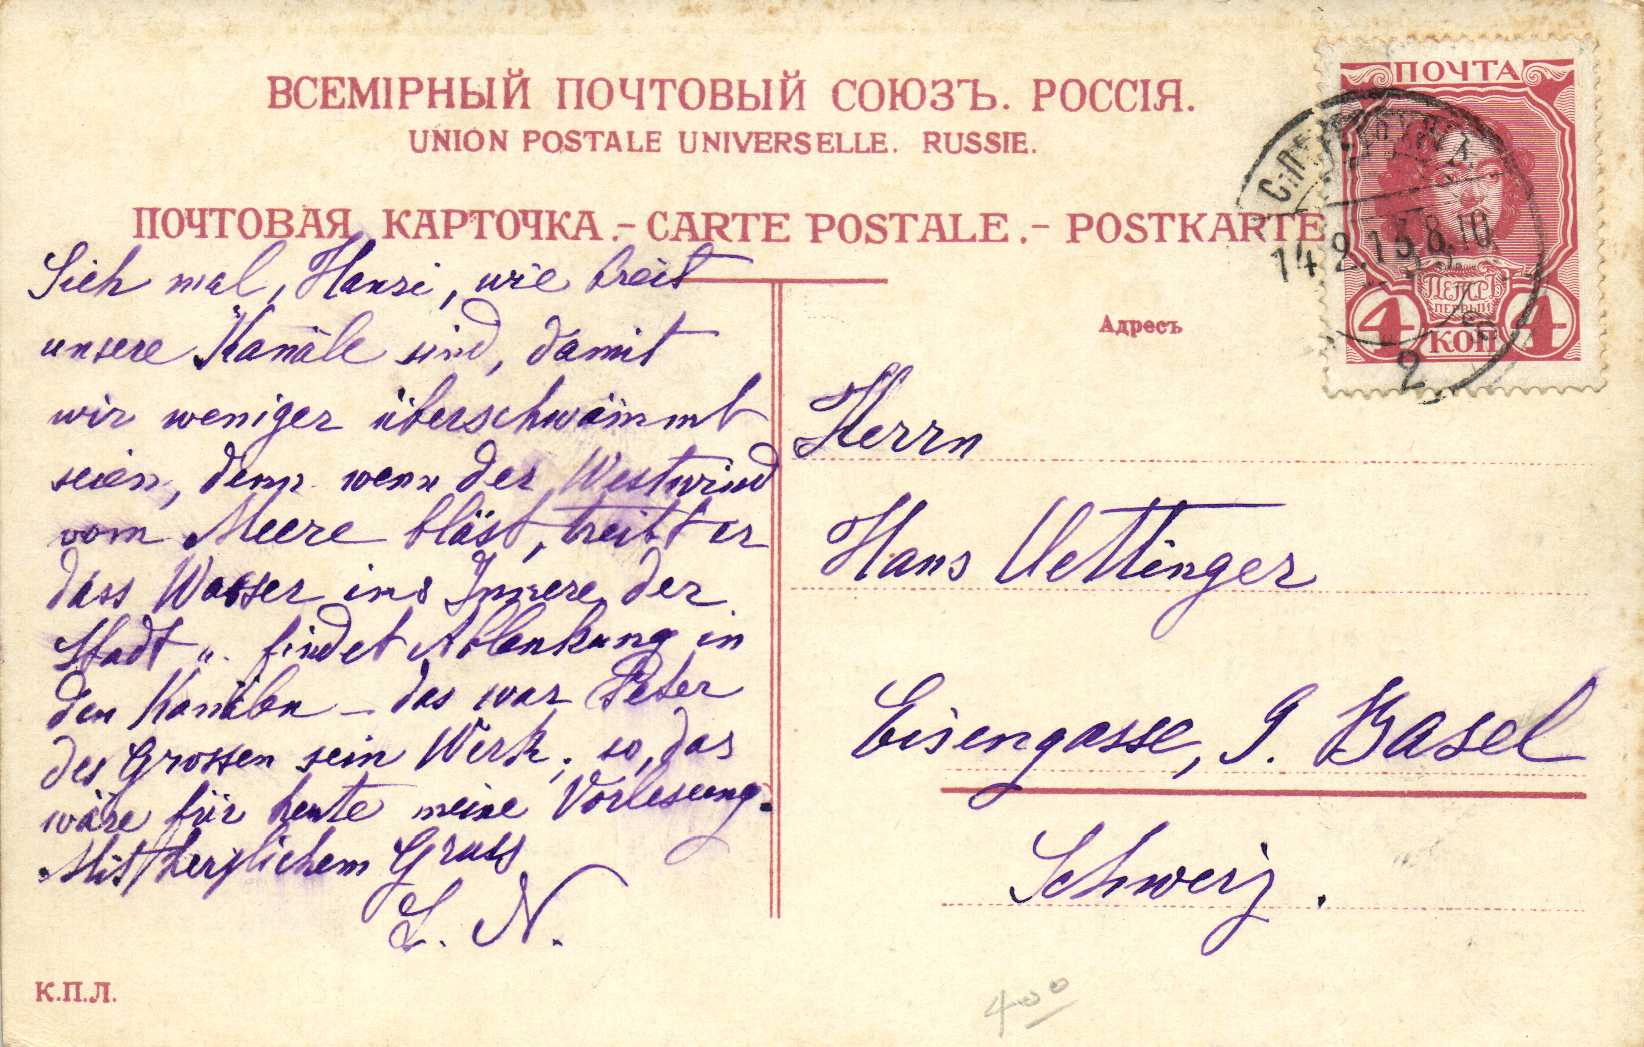 ВСЕМІРНЫЙ ПОЧТОВЫЙ СОЮЗЪ. РОССІЯ.
UNION POSTALE UNIVERSELLE. RUSSIE.
ПОЧТОВАЯ КАРТОЧКА.-CARTE POSTALE.- POSTKARTE
ПОЧТА
С.ПЕТЕРБУРГЪ
14.2.13.8.10
2
ПЕТРЪ
ПЕРВЫЙ
4 КОП 4
Sieh mal, Hansi, wie breit
unsere Kanäle sind, damit
wir weniger überschwämmt
seien, denn wenn der Westwind
vom Meere bläst, treibt er
dass Wasser ins Innere der
Stadt u. findet Ablenkung in
den Kanälen – das war Peter
des Grossen sein Werk, so, das
wäre für heute meine Vorlesung.
Mit herzlichem Gruss
L. N.
Адресъ
Herrn
Hans Uettinger
Eisengasse, 9. Basel
Schweiz.
К.П.Л.
400